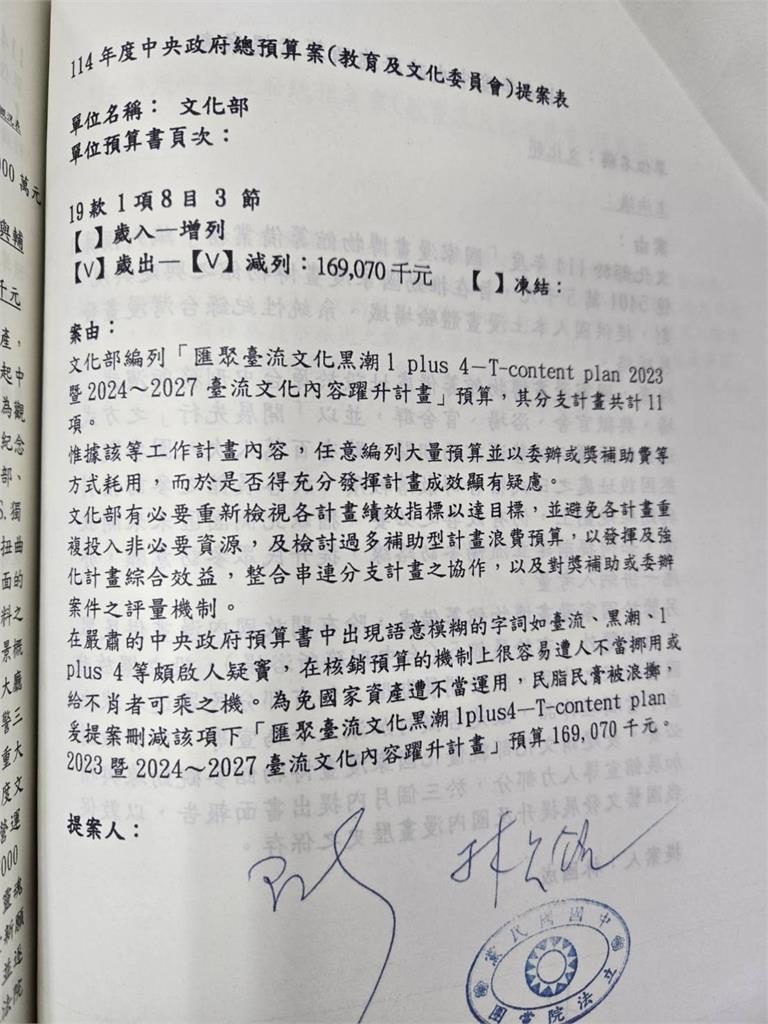 114年度中央政府總預算案(教育及文化委員會)提案表
單位名稱： 文化部
單位預算書頁次：
19款1項8目 3 節
【 】歲入—增列
【V】歲出—【V】減列：169,070千元 【 】凍結：
案由：
文化部編列「匯聚臺流文化黑潮1 plus 4—T-content plan 2023
暨2024～2027臺流文化內容躍升計畫」預算，其分支計畫共計11
項。
惟據該等工作計畫內容，任意編列大量預算並以委辦或獎補助費等
方式耗用，而於是否得充分發揮計畫成效顯有疑慮。
文化部有必要重新檢視各計畫績效指標以達目標，並避免各計畫重
複投入非必要資源，及檢討過多補助型計畫浪費預算，以發揮及強
化計畫綜合效益，整合串連分支計畫之協作，以及對獎補助或委辦
案件之評量機制。
在嚴肅的中央政府預算書中出現語意模糊的字詞如臺流、黑潮、1
plus 4等頗啟人疑竇，在核銷預算的機制上很容易遭人不當挪用或
給不肖者可乘之機。為免國家資產遭不當運用，民脂民膏被浪擲，
爰提案刪減該項下「匯聚臺流文化黑潮1plus4—T-content plan
2023暨2024～2027臺流文化內容躍升計畫」預算169,070千元。
提案人：
中國國民黨
立法院黨團
000 萬元
與輔
千元
產，
起中
為觀
紀念
部、
S.獨
扭曲
面的
料之
景概
大廳
警三
重大
度文
營運
000
靈魂
新願
並逐
法院